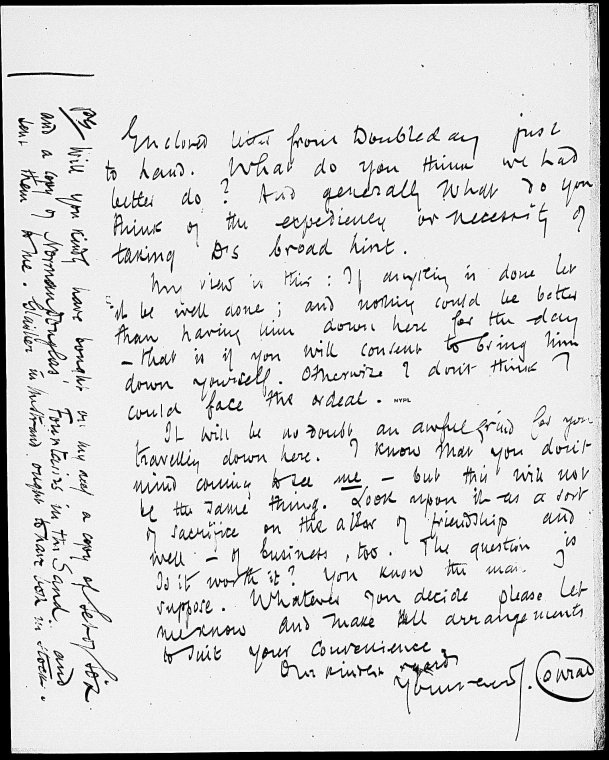 Enclosed letter from Doubleday just
to hand. What do you think we had
better do? And generally what do you
think of the expediency or necessity of
taking D's broad hint.
My view is this: If anything is done let
it be well done; and nothing could be better
than having him down here for the day
– that is if you will consent to bring him
down yourself. Otherwise I don't think I
could face the ordeal.
NYPL
It will be no doubt an awful grind for you
travelling down here. I know that you don't
mind coming to see me – but this will not
be the same thing. Look upon it as a sort
of sacrifice on the altar of friendship and
well – of business, too. The question is
Is it worth it? You know the man I
suppose. Whatever you decide please let
me know and make all arrangements
to suit your convenience
Our kindest regards
Yours ever J. Conrad
PS Will you kindly have bought on my acct a copy of
and a copy of Norman Douglas' Fountains in the Sand. and
sent them to me. in the Strand ought to have both in stock.